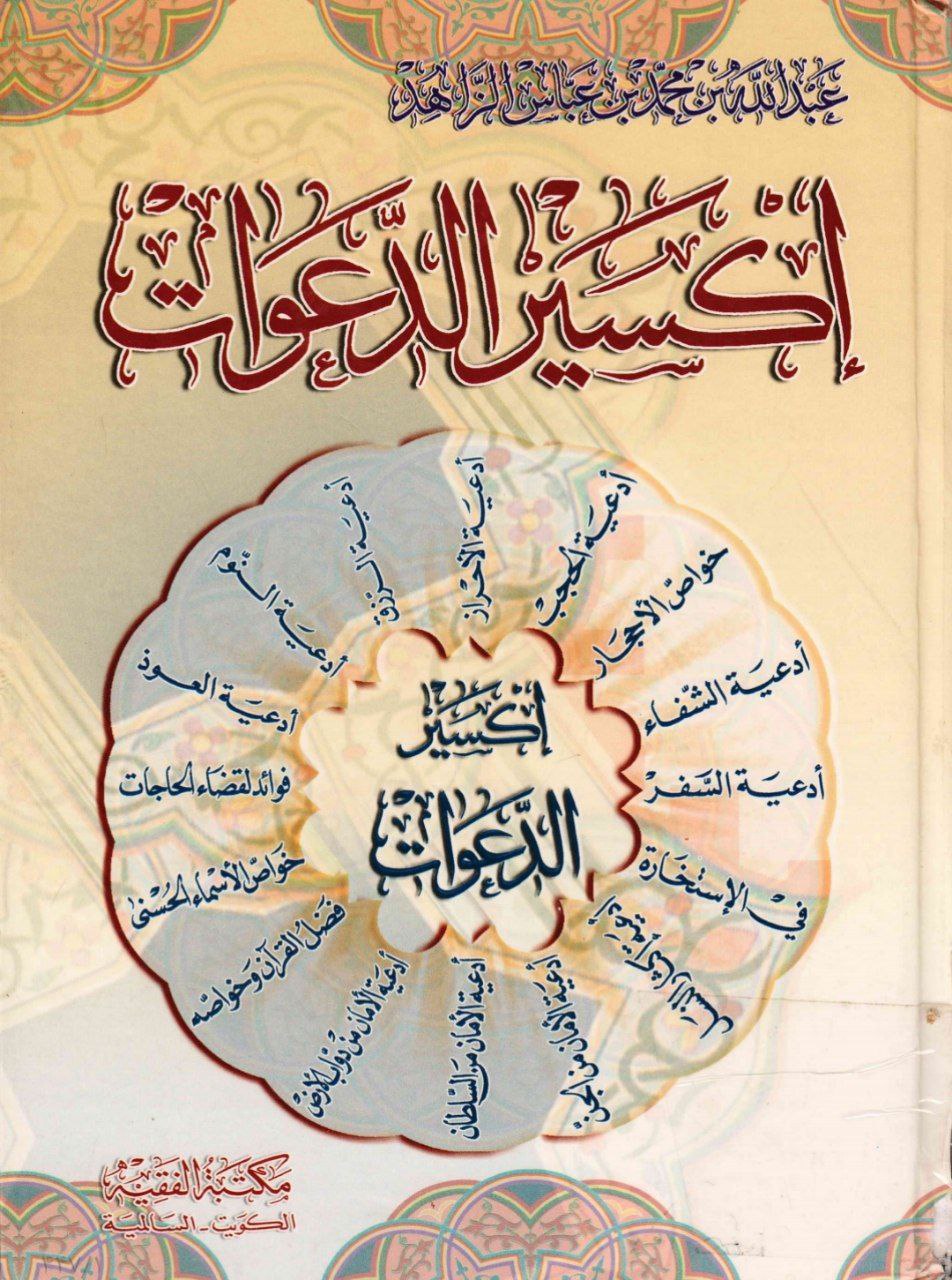 عَبْدُاللّٰه بْن مُحَمَّد بْن عَبَّاس الزَّاهِد
إِكْسِيرُ الدَّعَوَات
أدعيَة الأحراز
أدعيَة الحجب
خواصّ الأحجار
أدعيَة الشّفاء
أدعيَة السَّفرْ
في الإستخارة
أدعية الأمان من الجن
أدعية الأمان من السّلطان
أدعية الأمان من دواب الأرض
فضل القرآن وخواصّه
خواصّ الأسماء الحُسْنىٰ
فوائد لقضاء الحاجات
أدعيَة العوذ
أدعيَة النّوم
أدعيَة الرزق
إكسيرُ
الدَّعَوَات
مَكتبَةُ الفَقيْه
الكويت - السالمية